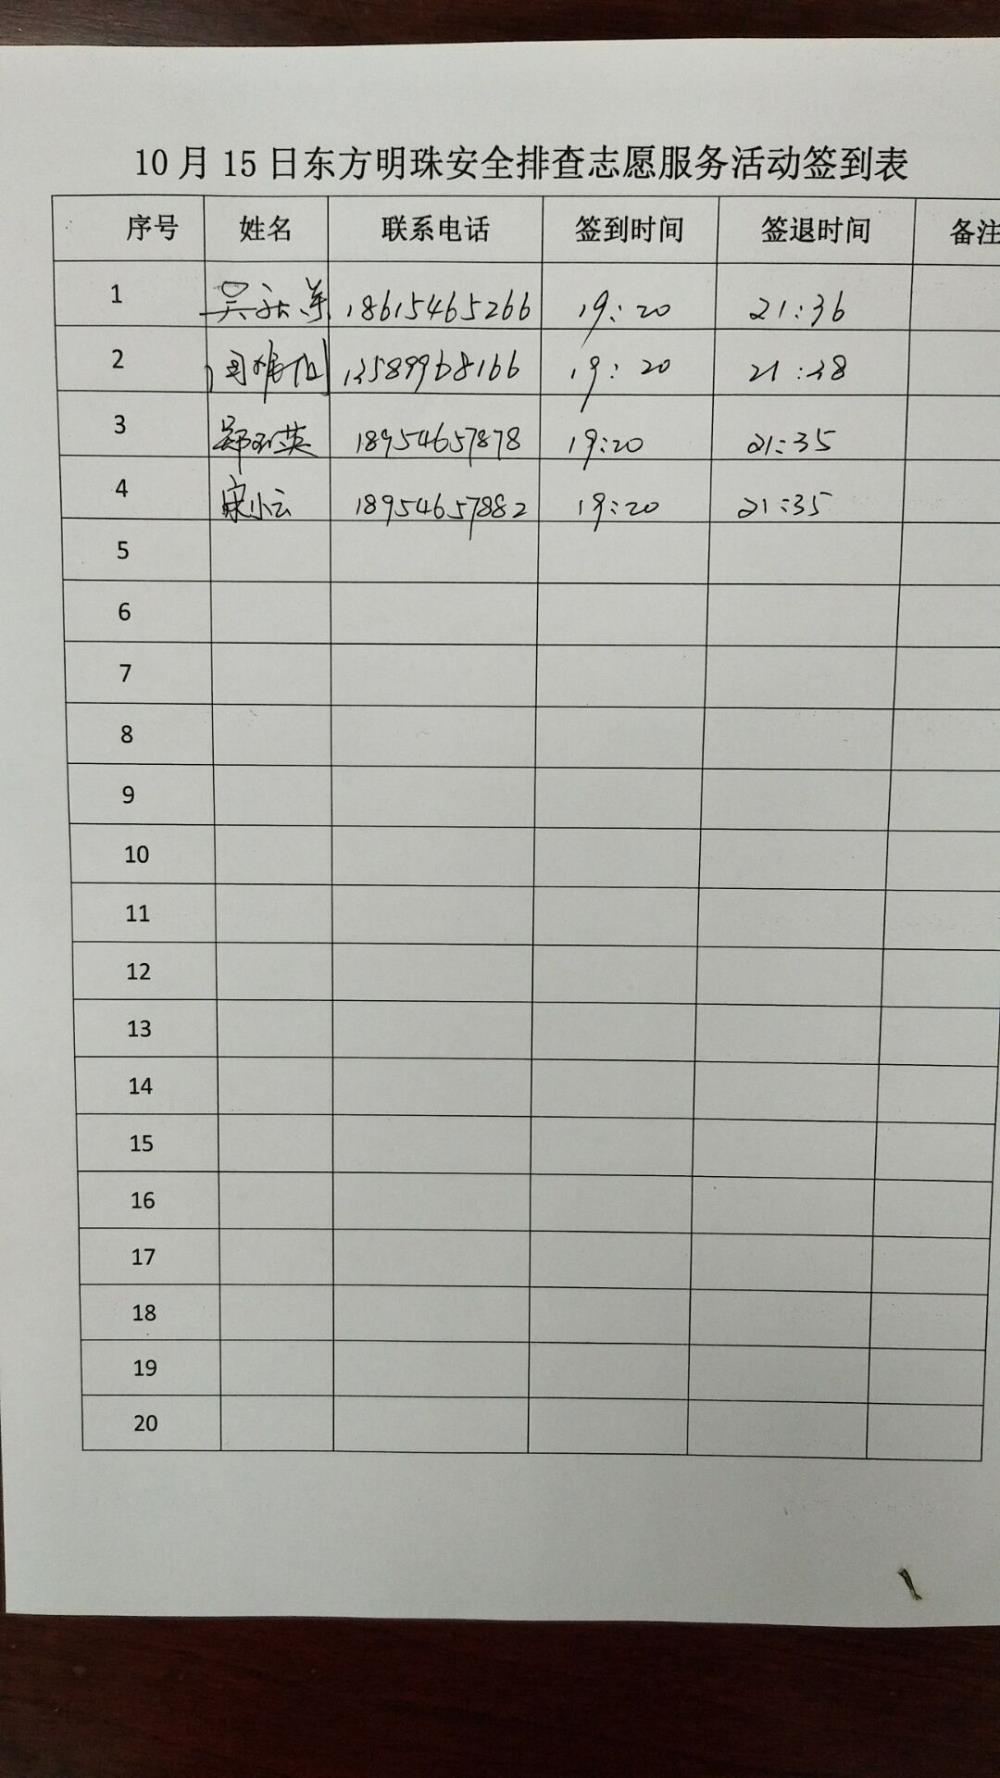 10月15日东方明珠安全排查志愿服务活动签到表
序号 姓名 联系电话 签到时间 签退时间 备注
1 吴 18615465266 19:20 21:36
2 周 13589968166 19:20 21:38
3 郑玉英 18954657878 19:20 21:35
4 宋小云 18954657882 19:20 21:35
5
6
7
8
9
10
11
12
13
14
15
16
17
18
19
20